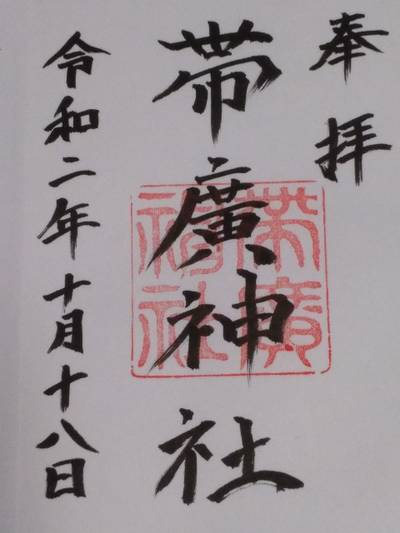 奉拝
帯廣神社
帯廣
神社
令和二年十月十八日